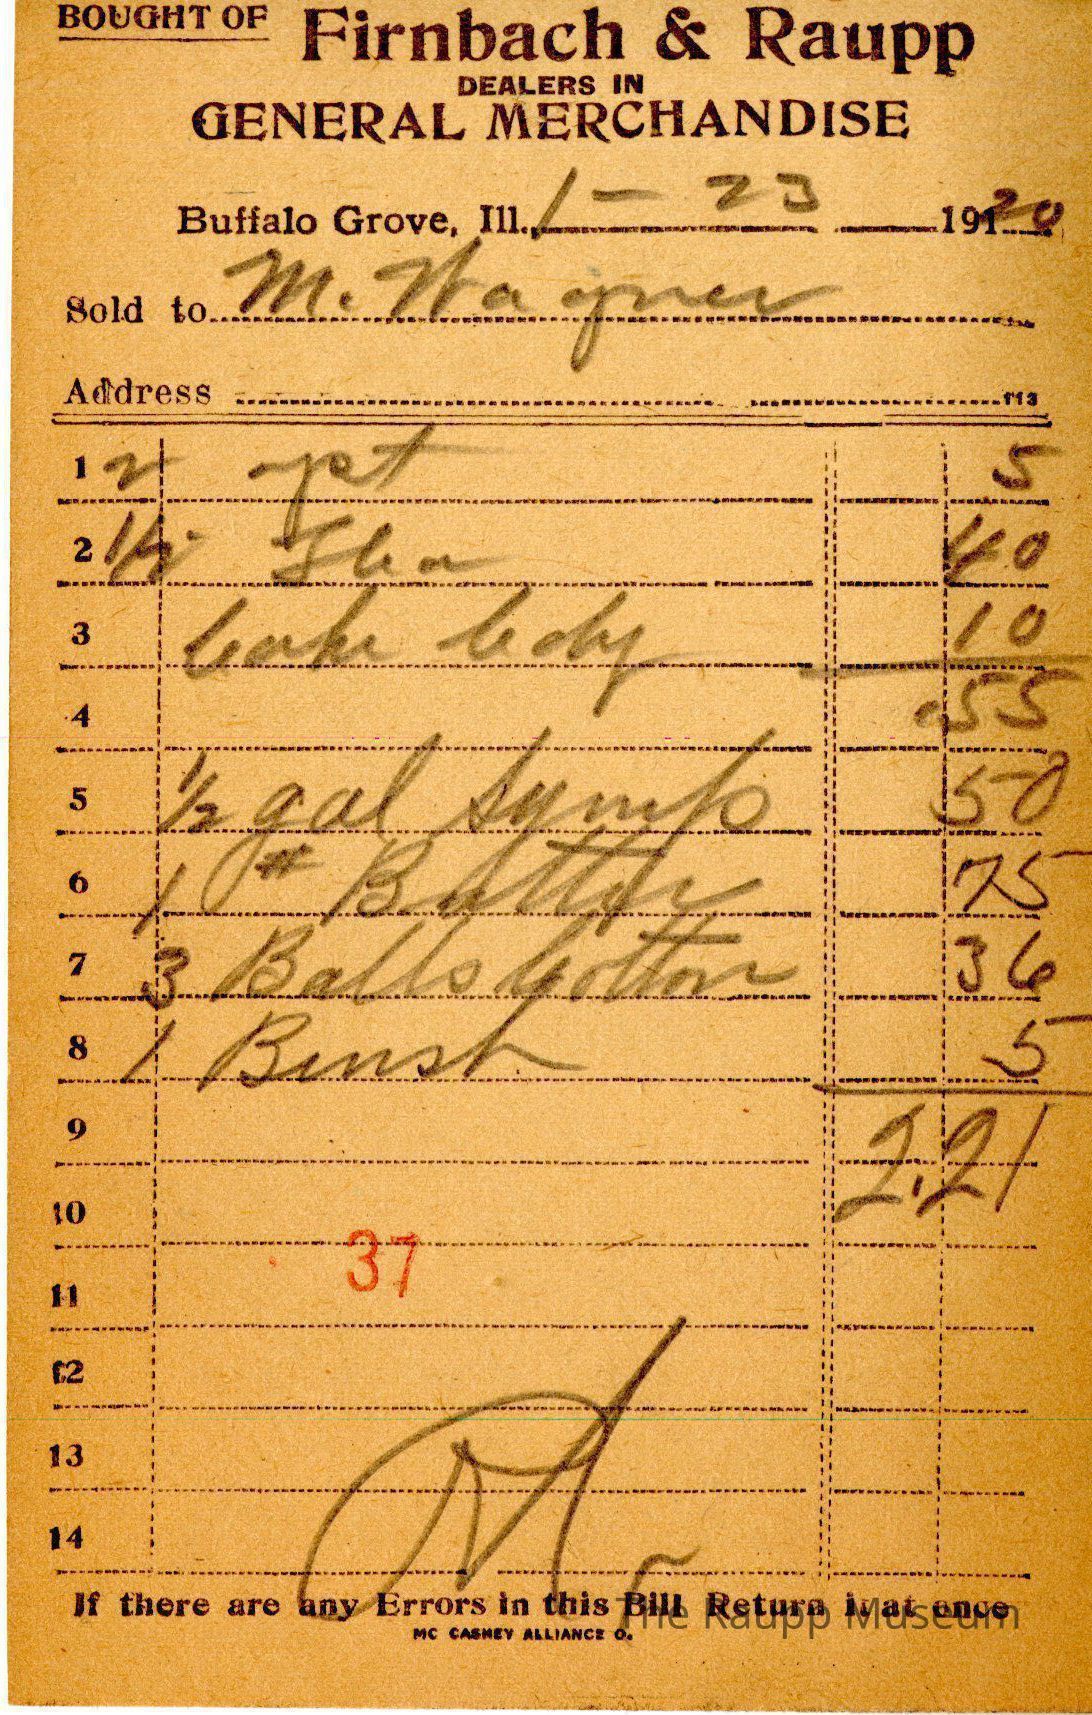 BOUGHT OF Firnbach & Raupp
DEALERS IN
GENERAL MERCHANDISE
Buffalo Grove, Ill., 1 - 23 191 20
Sold to M. Wagner
Address 113
1 2 5
2 1/2 40
3 10
4 .55
5 1/2 gal Syrup 50
6 1 # Butter 75
7 3 Balls Cotton 36
8 1 5
9 2.21
10
37
11
12
13
14
If there are any Errors in this Bill Return it at once
The Raupp Museum
MC CASKEY ALLIANCE O.